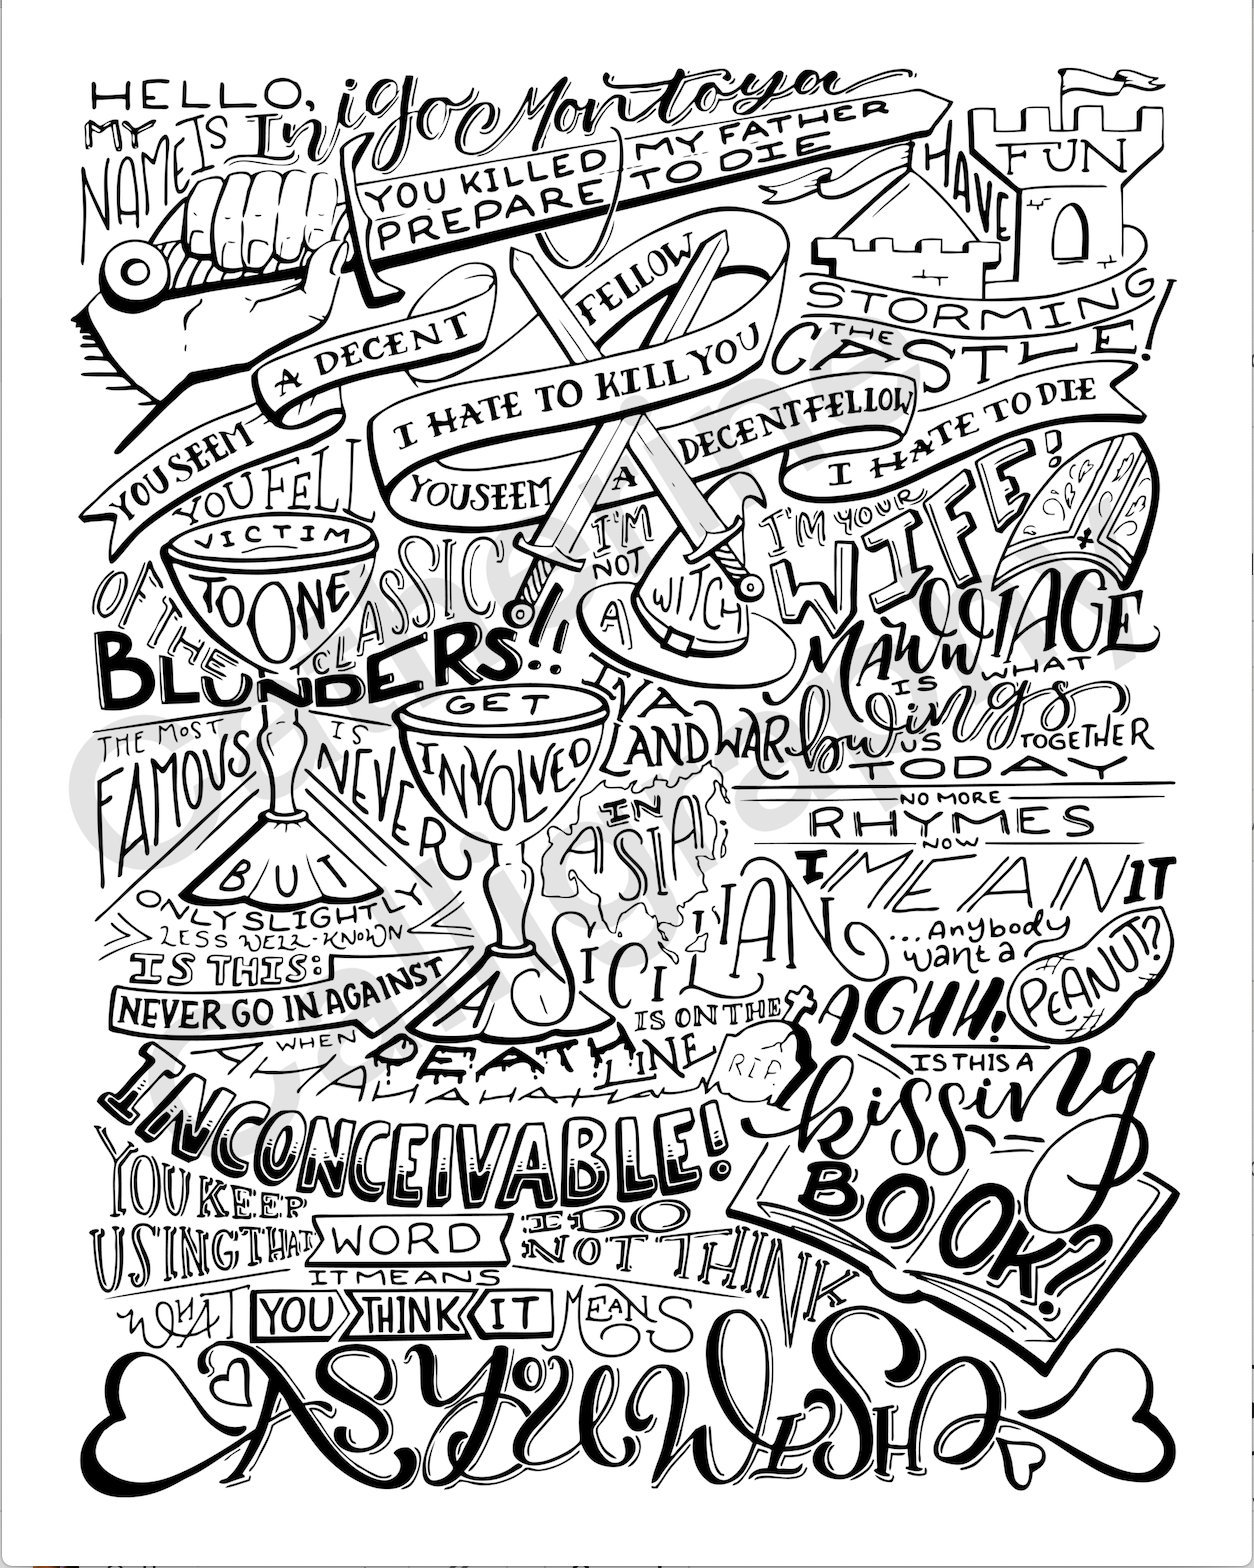 HELLO,
MY NAME IS Inigo Montoya
YOU KILLED MY FATHER
PREPARE TO DIE
HAVE FUN
STORMING
THE
CASTLE!
YOU SEEM A DECENT FELLOW
I HATE TO KILL YOU
YOU SEEM A DECENT FELLOW
I HATE TO DIE
YOU FELL
VICTIM
TO ONE
OF THE CLASSIC
BLUNDERS!!
THE MOST FAMOUS IS NEVER
GET
INVOLVED
IN A
LAND WAR
IN
ASIA
BUT
ONLY SLIGHTLY
LESS WELL-KNOWN
IS THIS:
NEVER GO IN AGAINST
A SICILIAN
WHEN
DEATH
IS ON THE
LINE
RIP
AHAHAHAHAHA
I'M
NOT
A WITCH
I'M YOUR
WIFE!
MAWWIAGE
IS WHAT
bwings
US TOGETHER
TODAY
NO MORE
RHYMES
NOW
I MEAN IT
...Anybody
want a
PEANUT?
AGHH!
IS THIS A
kissing
BOOK?
INCONCEIVABLE!
YOU KEEP
USING THAT WORD
I DO
NOT THINK
IT MEANS
WHAT YOU THINK IT MEANS
AS YOU WISH